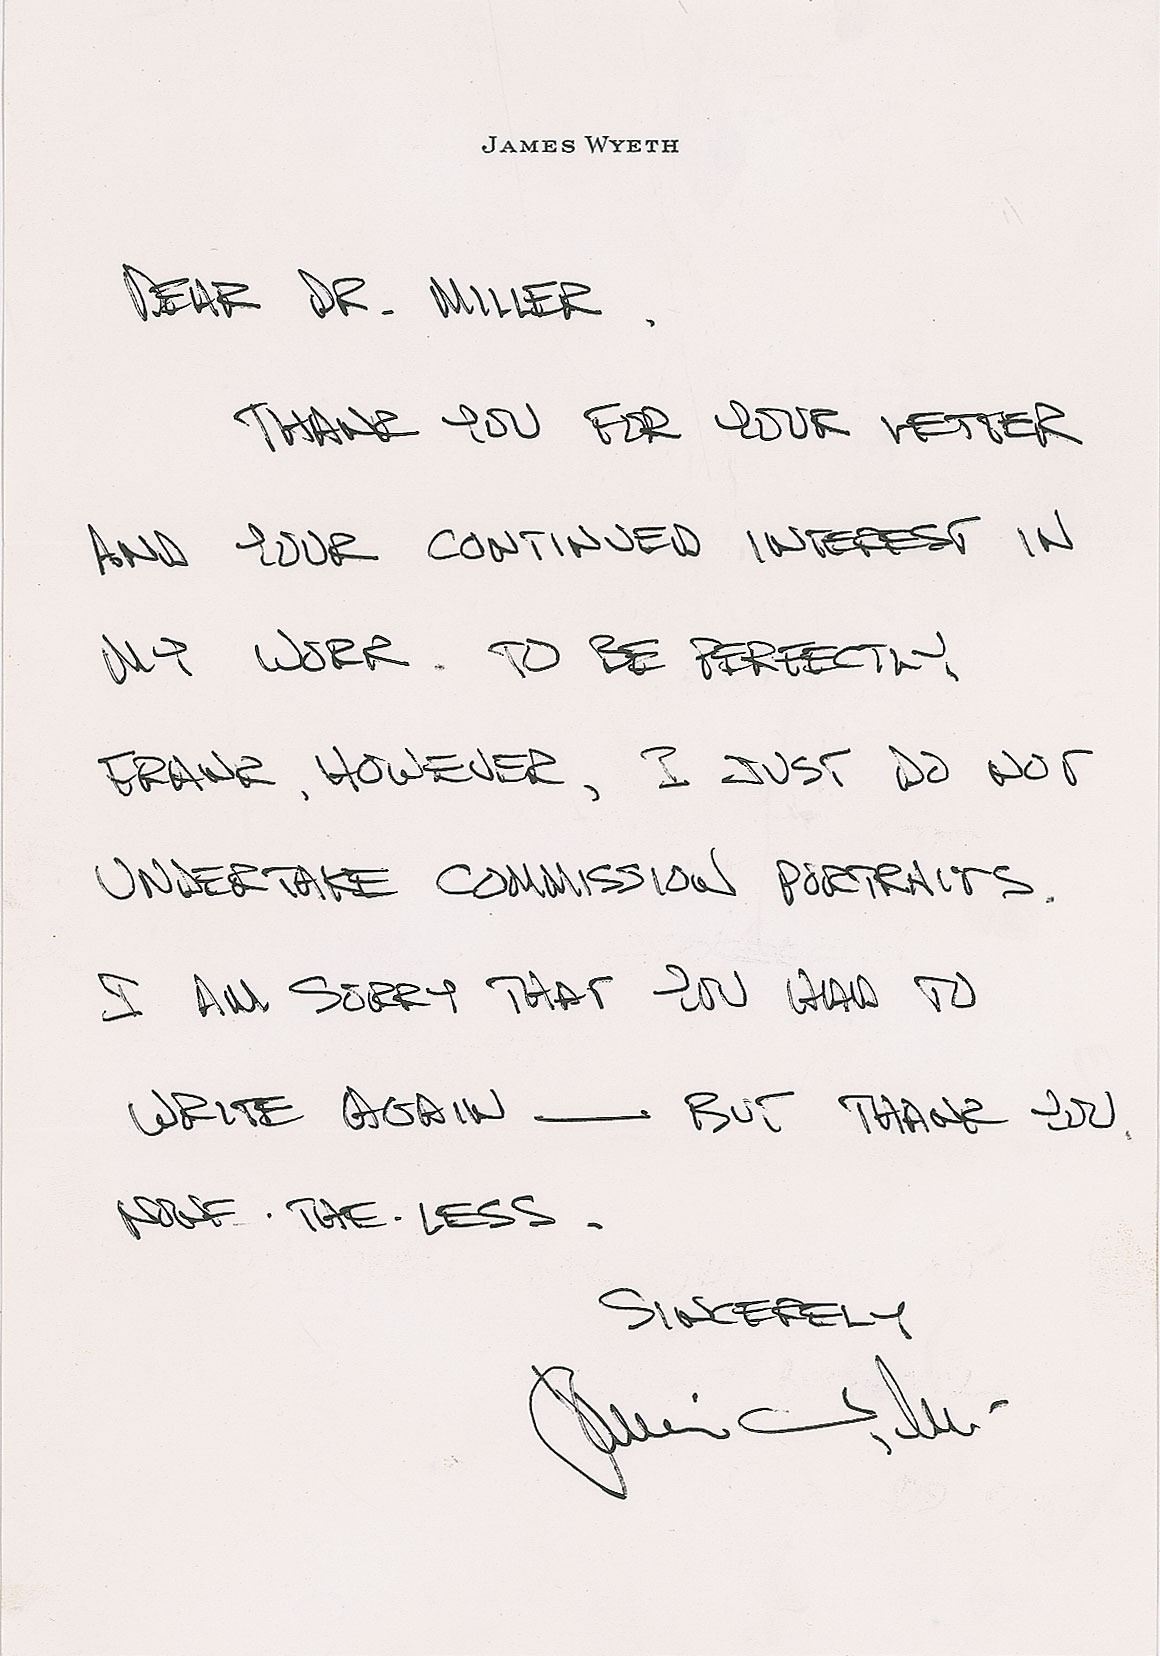 JAMES WYETH
DEAR DR. MILLER,
THANK YOU FOR YOUR LETTER
AND YOUR CONTINUED INTEREST IN
MY WORK. TO BE PERFECTLY
FRANK, HOWEVER, I JUST DO NOT
UNDERTAKE COMMISSION PORTRAITS.
I AM SORRY THAT YOU HAD TO
WRITE AGAIN — BUT THANK YOU,
NONE-THE-LESS.
SINCERELY